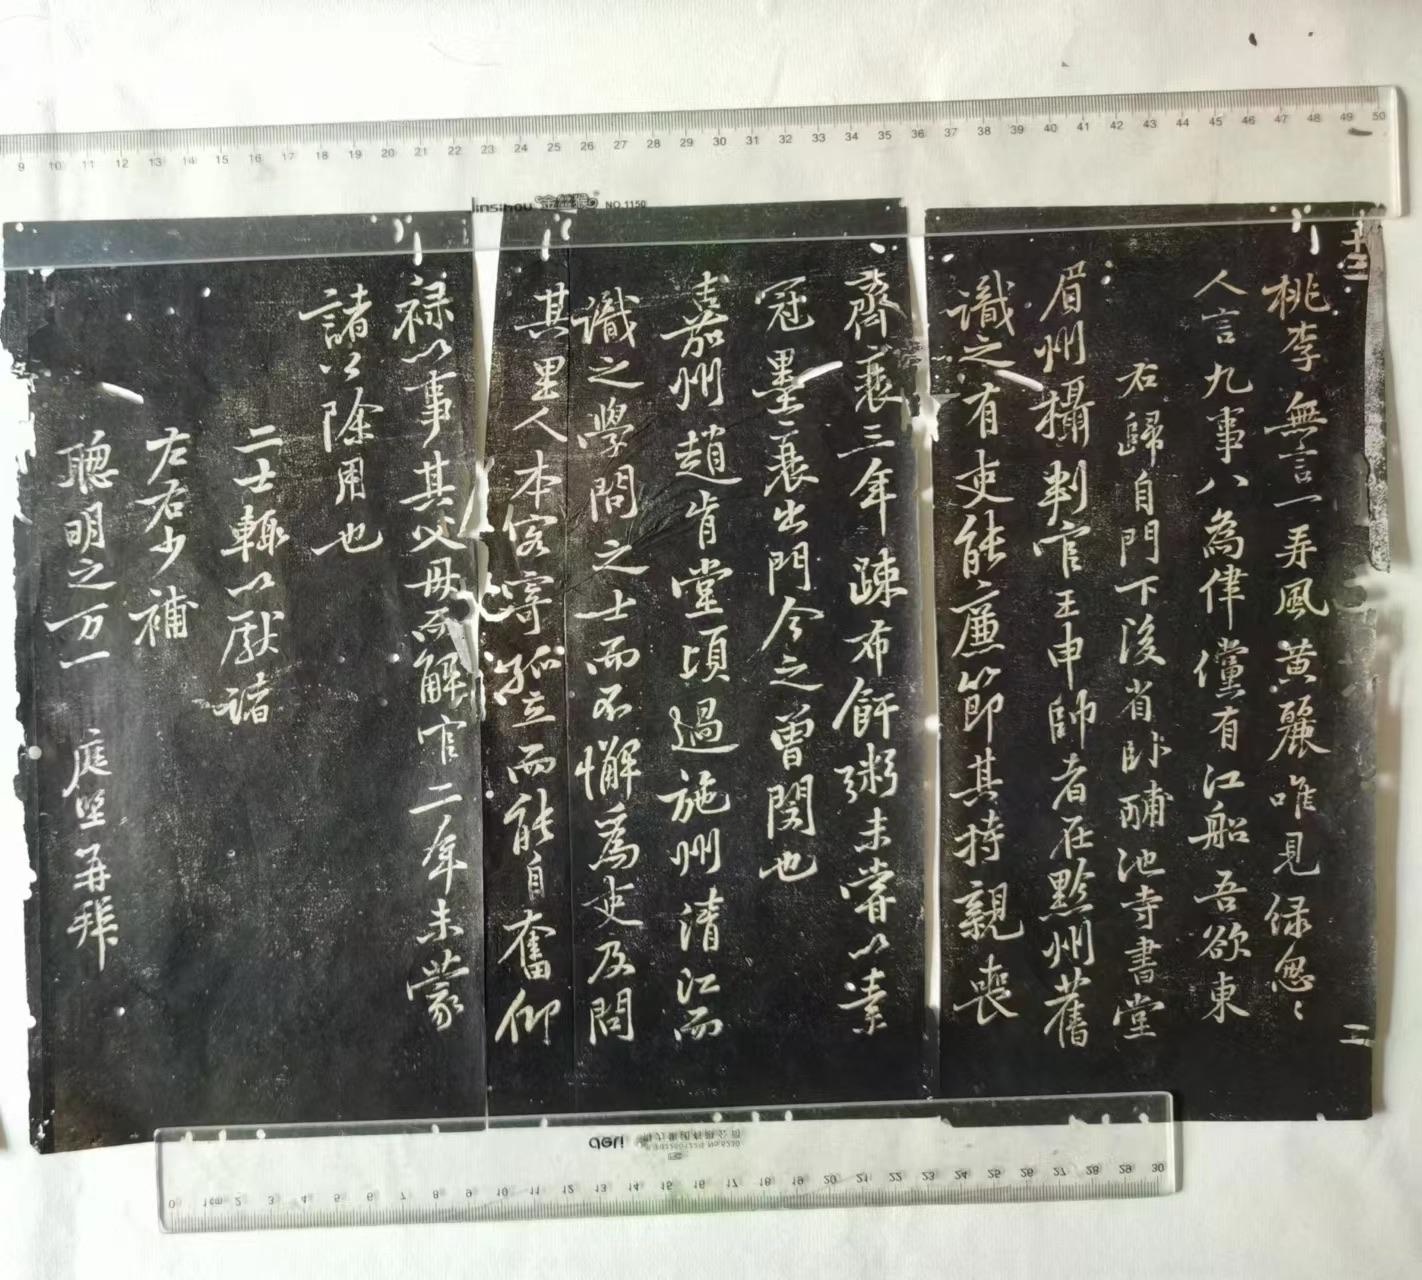 十三
桃李無言一再風黄麗唯見緑怱〻
人言九事八為律儻有江船吾欲東
右歸自門下後省卧酺池寺書堂
眉州攝判官王申師者在黔州舊
識之有吏能廉節其持親喪
齊衰三年疎布飦粥未嘗以素
冠墨衰出門今之曾閔也
嘉州趙肯堂頃過施州清江而
識之學問之士而不懈為吏及問
其里人本客寄孤立而能自奮仰
禄以事其父母而解官二年未蒙
諸公除用也
二士輙以獻諸
左右少補
聰明之万一 庭堅再拜
二
9 10 11 12 13 14 15 16 17 18 19 20 21 22 23 24 25 26 27 28 29 30 31 32 33 34 35 36 37 38 39 40 41 42 43 44 45 46 47 48 49 50
jinsihou 金丝猴 NO.1150
deli
0 1cm 2 3 4 5 6 7 8 9 10 11 12 13 14 15 16 17 18 19 20 21 22 23 24 25 26 27 28 29 30